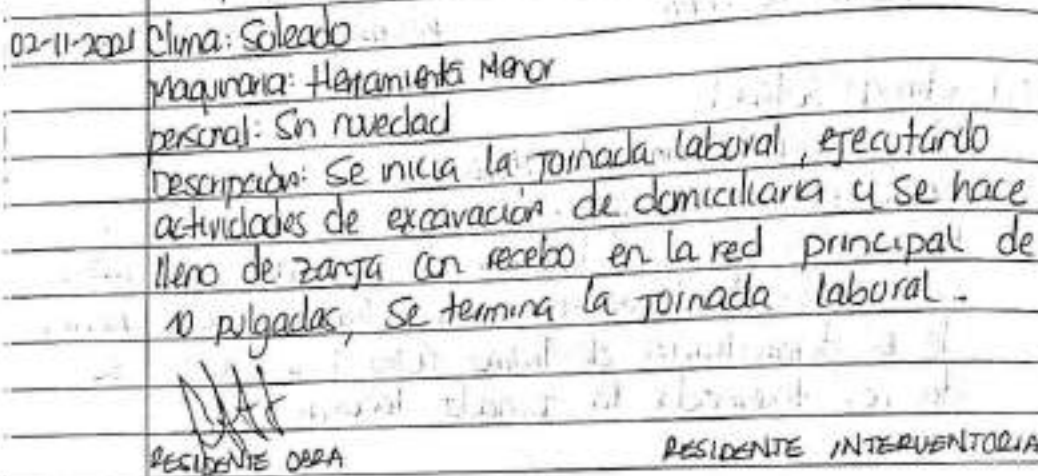 02-11-2021 Clima: Soleado
Maquinaria: Herramienta Menor
personal: Sin novedad
Descripción: Se inicia la jornada laboral, ejecutando
actividades de excavación de domiciliaria y se hace
lleno de zanja con recebo en la red principal de
10 pulgadas, Se termina la jornada laboral.
RESIDENTE OBRA RESIDENTE INTERVENTORIA